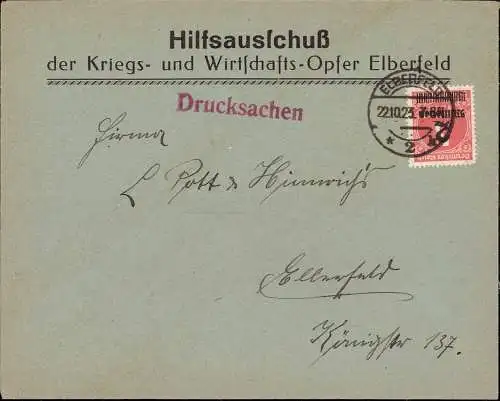 Hilfsausſchuß
der Kriegs- und Wirtſchafts-Opfer Elberfeld
Drucksachen
ELBERFELD
22.10.23.
* 2
Firma
C. Pott & Hinnrichs
Elberfeld
Königstr 137.
Deutsches Reich